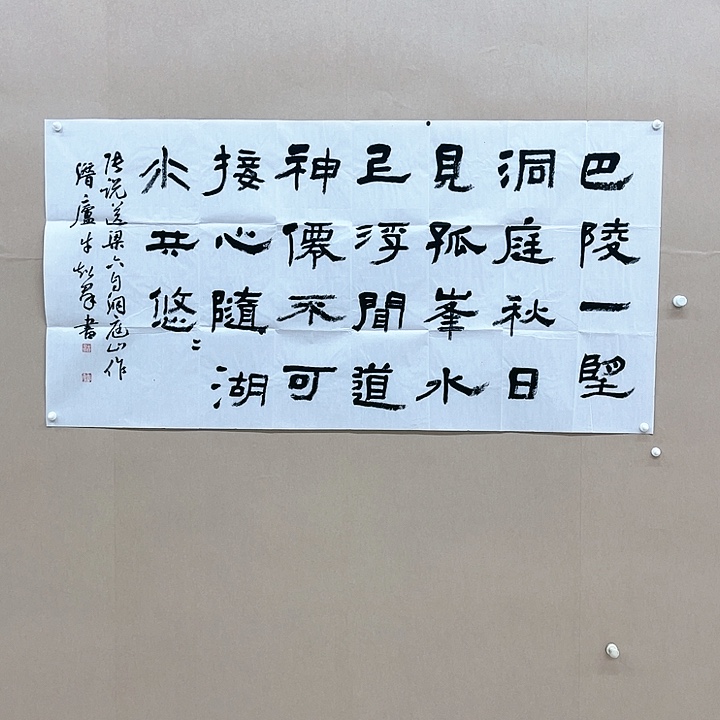 巴陵一望
洞庭秋日
見孤峯水
上浮聞道
神僊不可
接心隨湖
水共悠〻
張説送梁六自洞庭山作
潛廬牛書